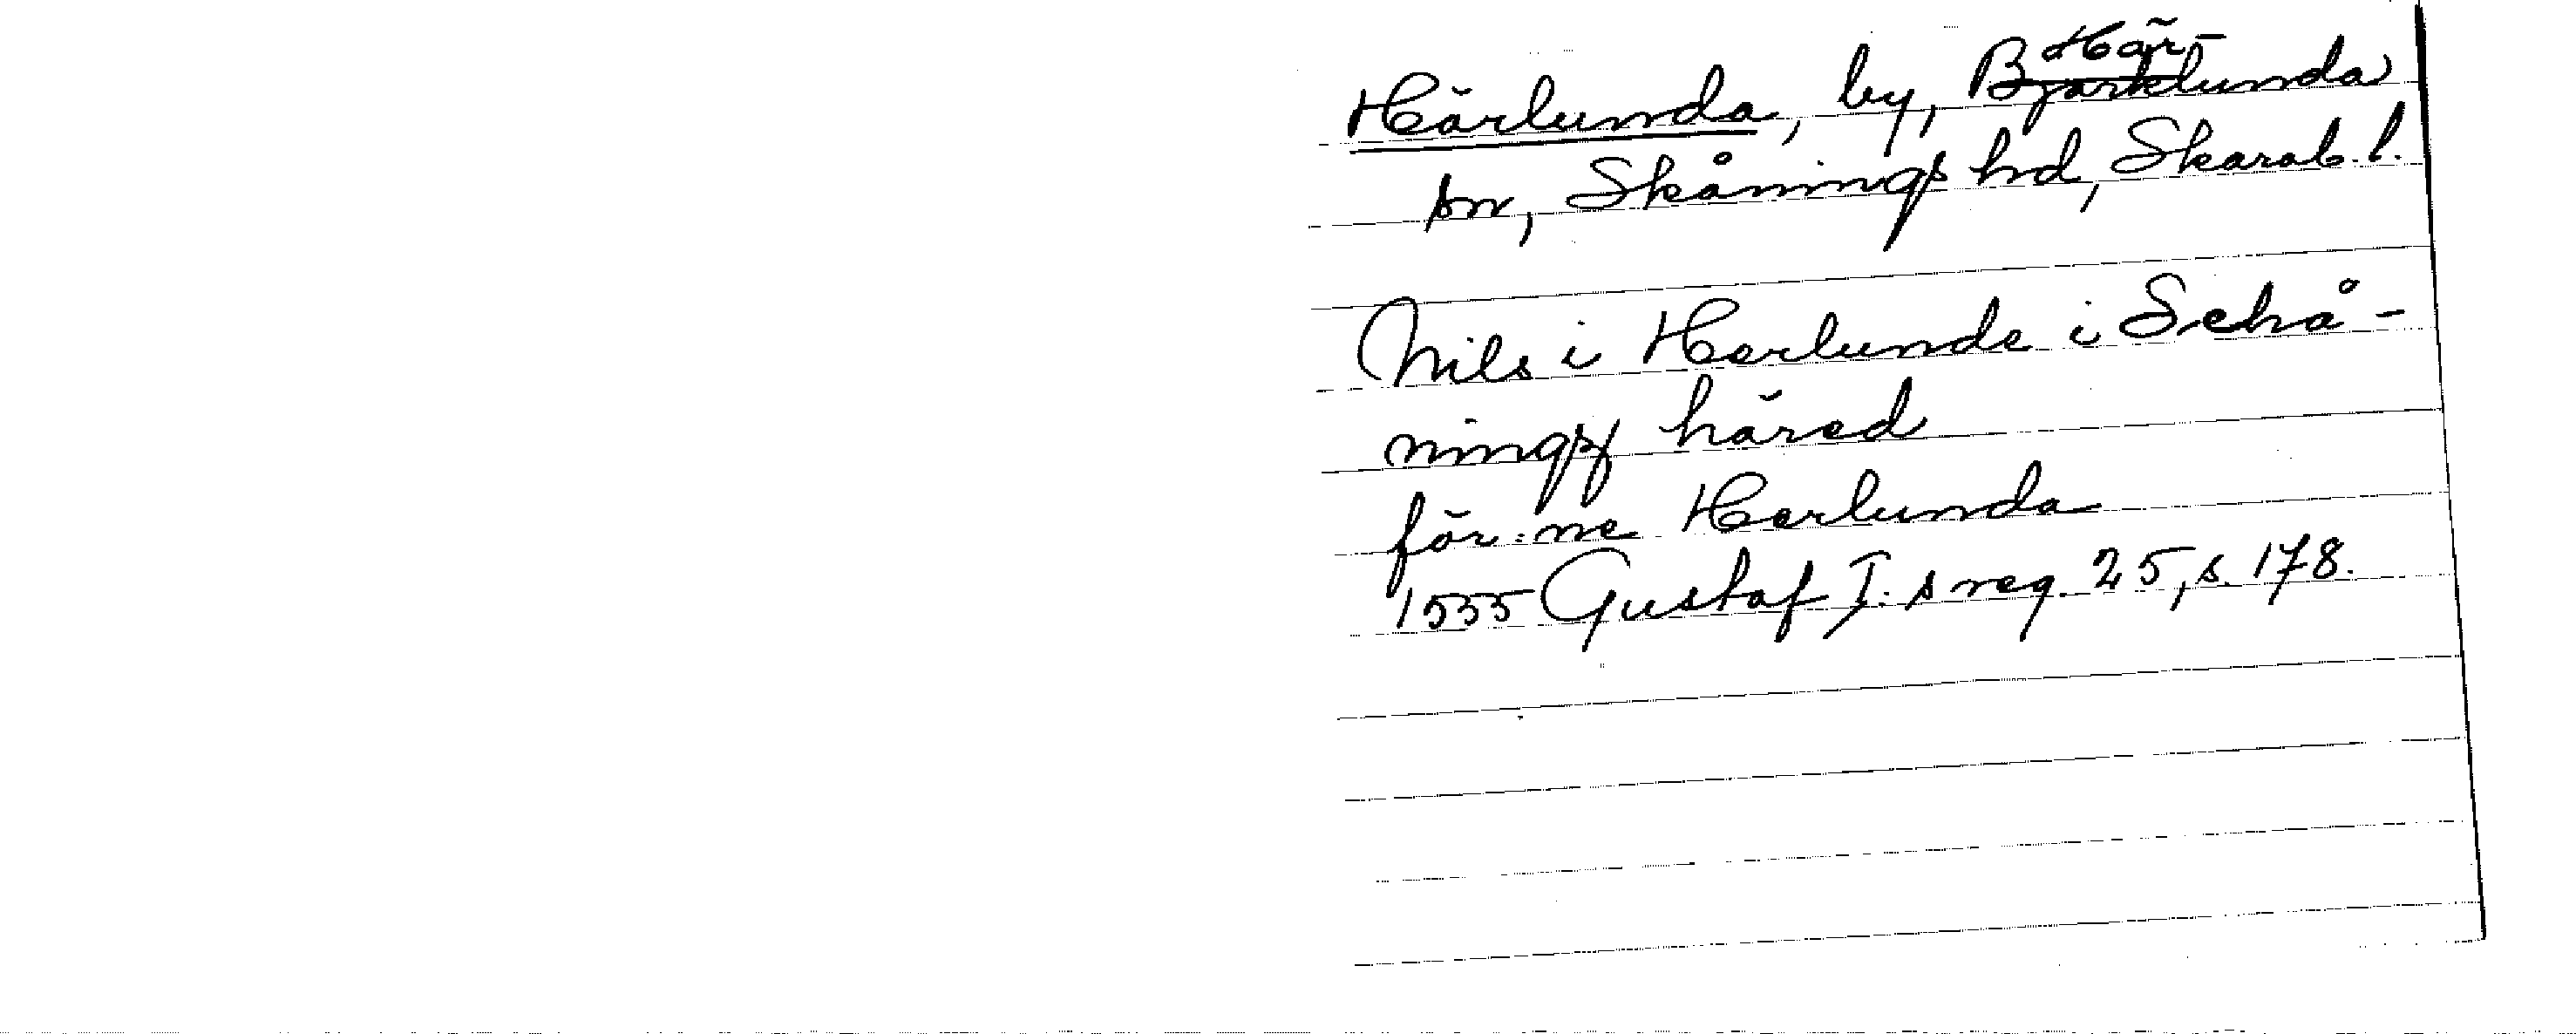 Härlunda, by, Härlunda
sn, Skånings hd, Skarab. l.
Nils i Harlunde i Schå-
ningx häred
för: ne Harlunda
1555 Gustaf I:s reg. 25, s. 178.